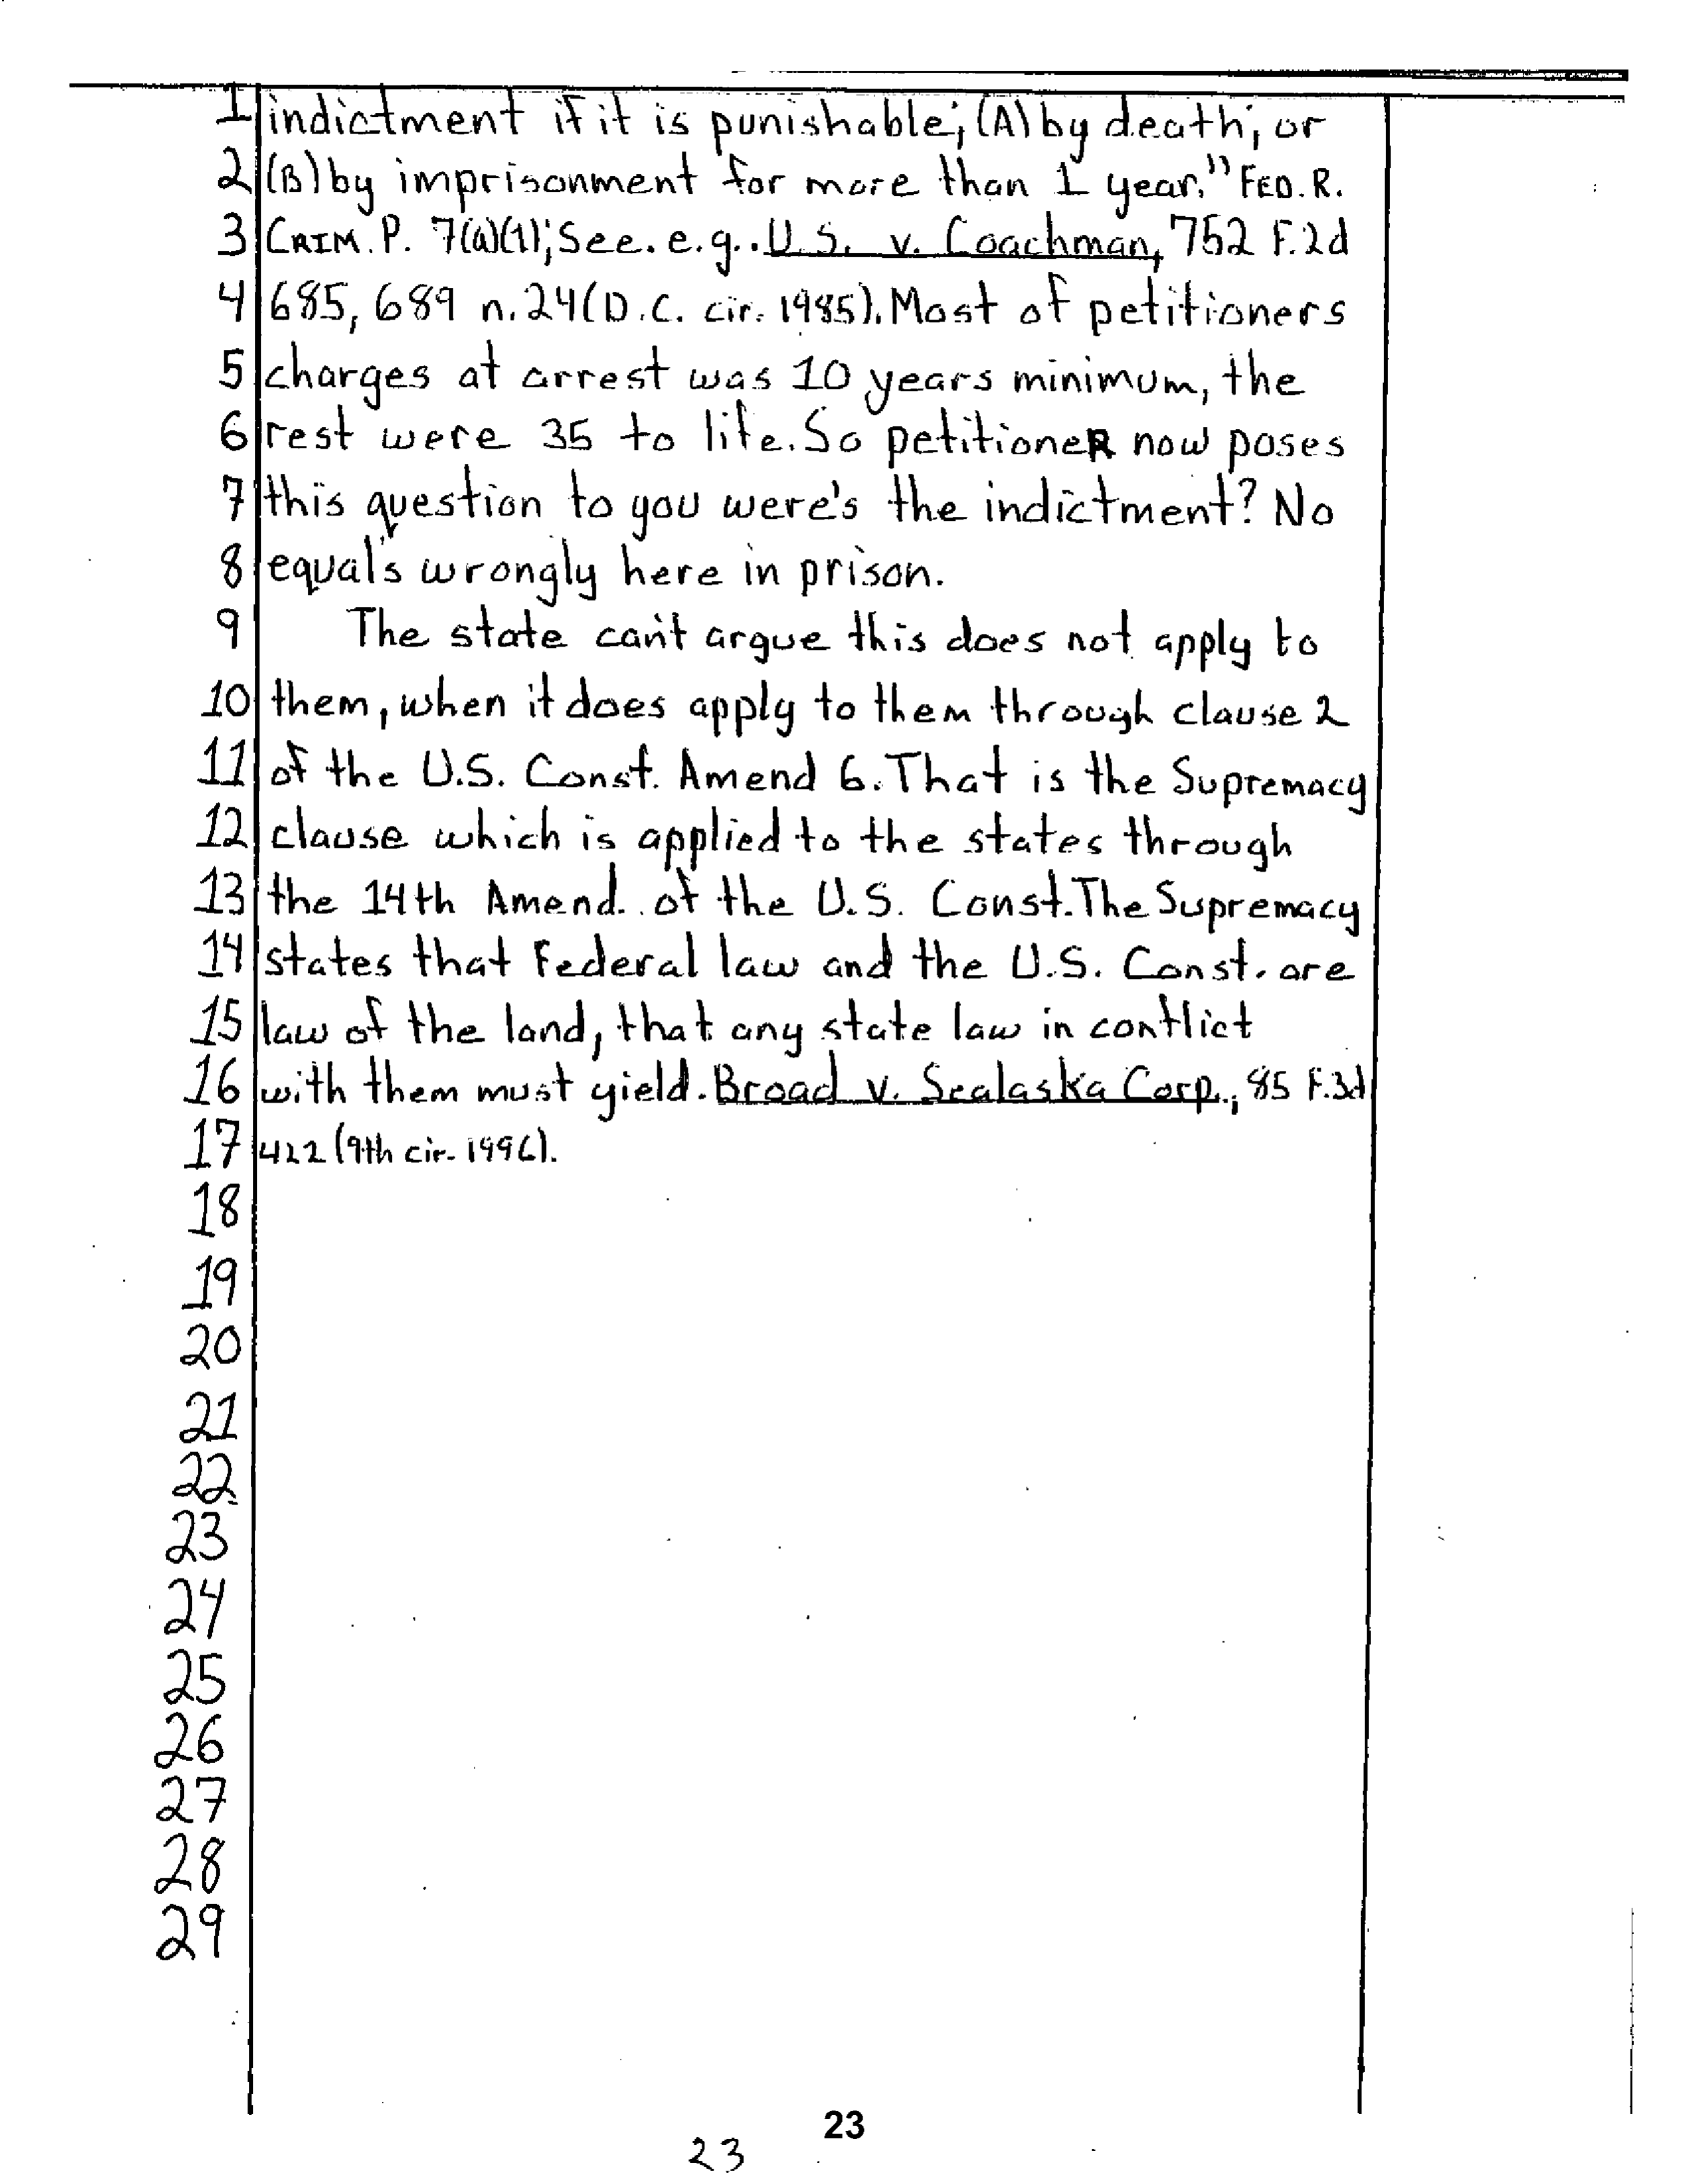 1 indictment if it is punishable; (A) by death; or
2 (B) by imprisonment for more than 1 year." FED. R.
3 CRIM. P. 7(a)(1); See. e.g.. U.S. v. Coachman, 752 F.2d
4 685, 689 n.24 (D.C. cir. 1985). Most of petitioners
5 charges at arrest was 10 years minimum, the
6 rest were 35 to life. So petitioneR now poses
7 this question to you were's the indictment? No
8 equal's wrongly here in prison.
9 The state can't argue this does not apply to
10 them, when it does apply to them through clause 2
11 of the U.S. Const. Amend 6. That is the Supremacy
12 clause which is applied to the states through
13 the 14th Amend. of the U.S. Const. The Supremacy
14 states that Federal law and the U.S. Const. are
15 law of the land, that any state law in conflict
16 with them must yield. Broad v. Sealaska Corp., 85 F.3d
17 422 (9th cir. 1996).
18
19
20
21
22
23
24
25
26
27
28
29
23
23